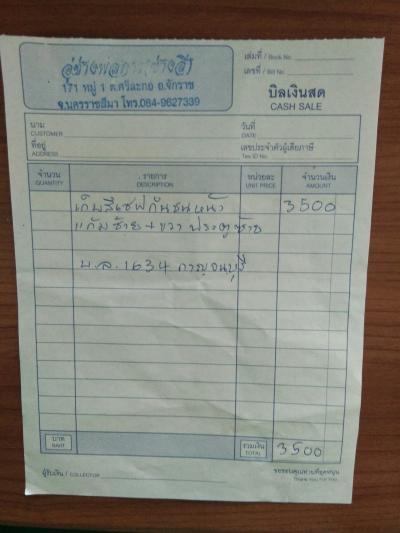 อู่ช่างพลการ(ช่างลี)
171 หมู่ 1 ต.ศรีละกอ อ.จักราช
จ.นครราชสีมา โทร.084-9627339
เล่มที่ / Book No.
เลขที่ / Bill No.
บิลเงินสด
CASH SALE
นาม
CUSTOMER
วันที่
DATE
ที่อยู่
ADDRESS
เลขประจำตัวผู้เสียภาษี
Tax ID No.
จำนวน
QUANTITY
รายการ
DESCRIPTION
หน่วยละ
UNIT PRICE
จำนวนเงิน
AMOUNT
เก็บสีเซฟกันชนหน้า 3500
แก้มซ้าย+ขวา ประตูซ้าย
บ.ล.1634 กาญจนบุรี
บาท
BAHT
รวมเงิน
TOTAL
3500
ผู้รับเงิน / COLLECTOR
ขอขอบคุณท่านที่อุดหนุน
Thank You For You